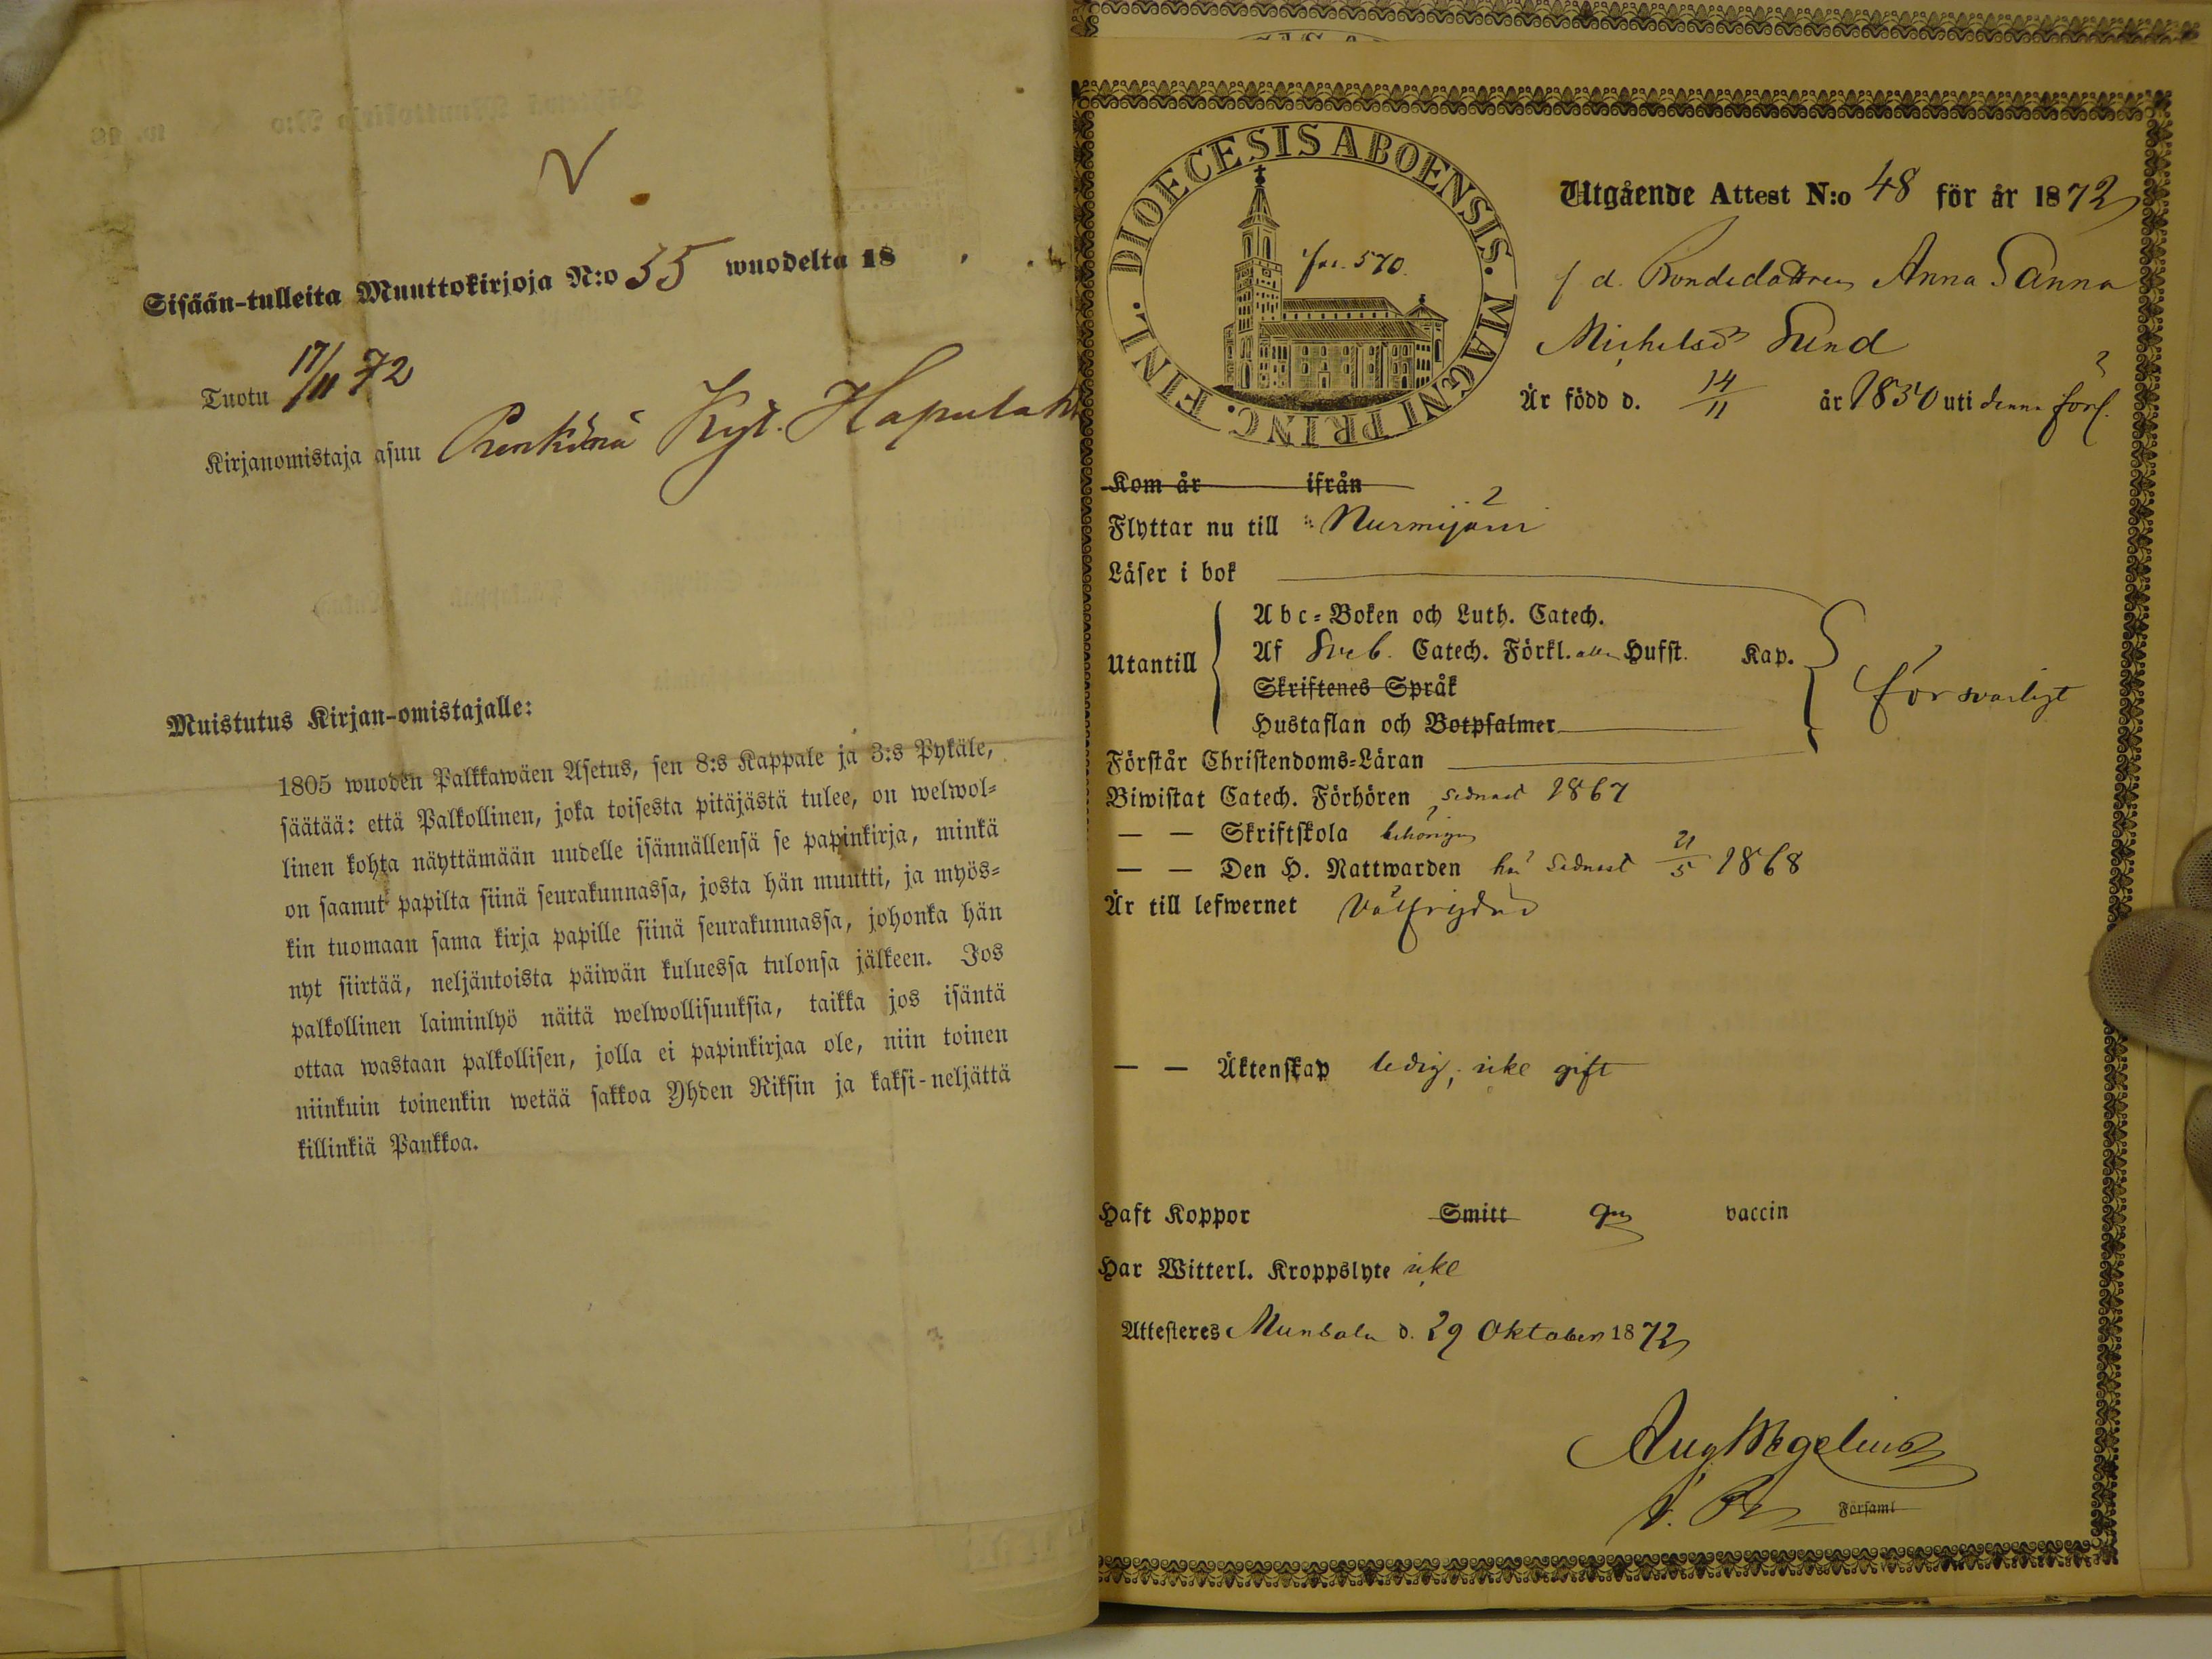 V.
Sisään-tulleita Muuttokirjoja N:o 55 wuodelta 18
Tuotu 17/11 72
Kirjanomistaja asuu Kyl.
Muistutus Kirjan-omistajalle:
1805 wuoden Palkkawäen Asetus, sen 8:s Kappale ja 3:s Pykäle,
säätää: että Palkollinen, joka toisesta pitäjästä tulee, on welwol-
linen kohta näyttämään uudelle isännällensä se papinkirja, minkä
on saanut papilta siinä seurakunnassa, josta hän muutti, ja myös-
kin tuomaan sama kirja papille siinä seurakunnassa, johonka hän
nyt siirtää, neljäntoista päiwän kuluessa tulonsa jälkeen. Jos
palkollinen laiminlyö näitä welwollisuuksia, taikka jos isäntä
ottaa wastaan palkollisen, jolla ei papinkirjaa ole, niin toinen
niinkuin toinenkin wetää sakkoa Yhden Riksin ja kaksi-neljättä
killinkiä Pankkoa.
DIOECESIS ABOENSIS. MAGNI PRINC. FINL.
570.
Utgående Attest N:o 48 för år 1872
f d. Bondedottren Anna Sanna
Michelsdr Sund
Är född d. 14/11 år 1830 uti denna förs.
Kom år ifrån
Flyttar nu till Nurmijärvi
Läser i bok
Utantill
Abc-Boken och Luth. Catech.
Af Sveb. Catech. Förkl. eller Hufst. Kap.
Skriftenes Språk
Hustaflan och Botpsalmer
försvarligt
Förstår Christendoms-Läran
Biwistat Catech. Förhören sednast 1867
— — Skriftskola behörigen
— — Den H. Nattwarden här sednast 21/5 1868
Är till lefwernet välfrejdad
— — Äktenskap ledig, icke gift
Haft Koppor Smitt gm vaccin
Har Witterl. Kroppslyte icke
Attesteres Munsala d. 29 Oktober 1872
Aug Wegelius
Församl